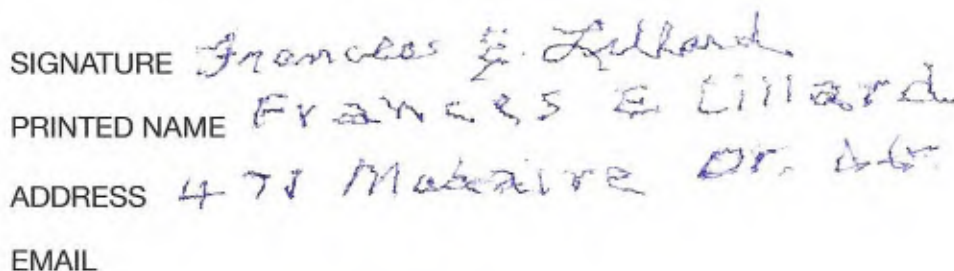 SIGNATURE Frances E. Lillard
PRINTED NAME Frances E Lillard
ADDRESS 471 Dr.
EMAIL